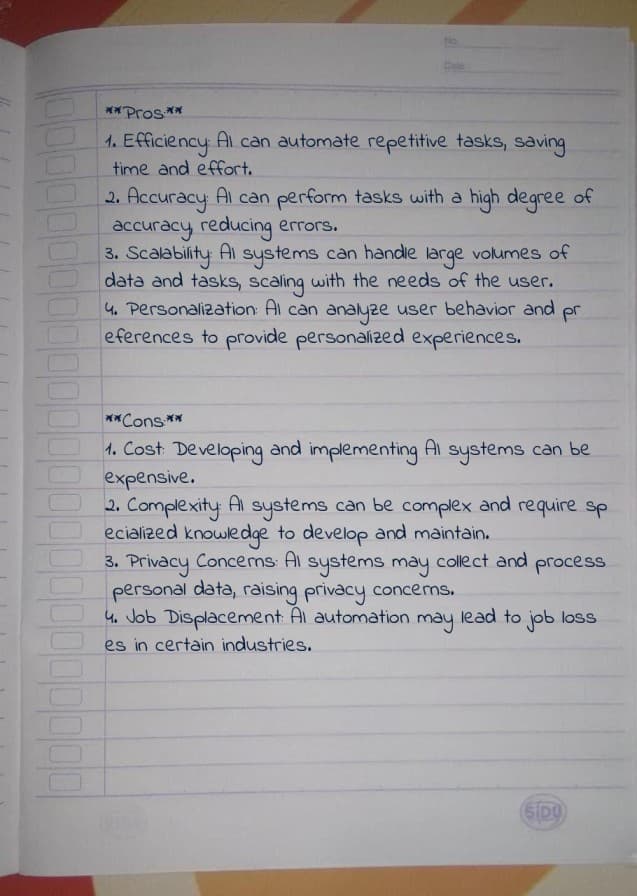 No.
Date
**Pros:**
1. Efficiency: AI can automate repetitive tasks, saving
time and effort.
2. Accuracy: AI can perform tasks with a high degree of
accuracy, reducing errors.
3. Scalability: AI systems can handle large volumes of
data and tasks, scaling with the needs of the user.
4. Personalization: AI can analyze user behavior and pr
eferences to provide personalized experiences.
**Cons:**
1. Cost: Developing and implementing AI systems can be
expensive.
2. Complexity: AI systems can be complex and require sp
ecialized knowledge to develop and maintain.
3. Privacy Concerns: AI systems may collect and process
personal data, raising privacy concerns.
4. Job Displacement: AI automation may lead to job loss
es in certain industries.
SIDU